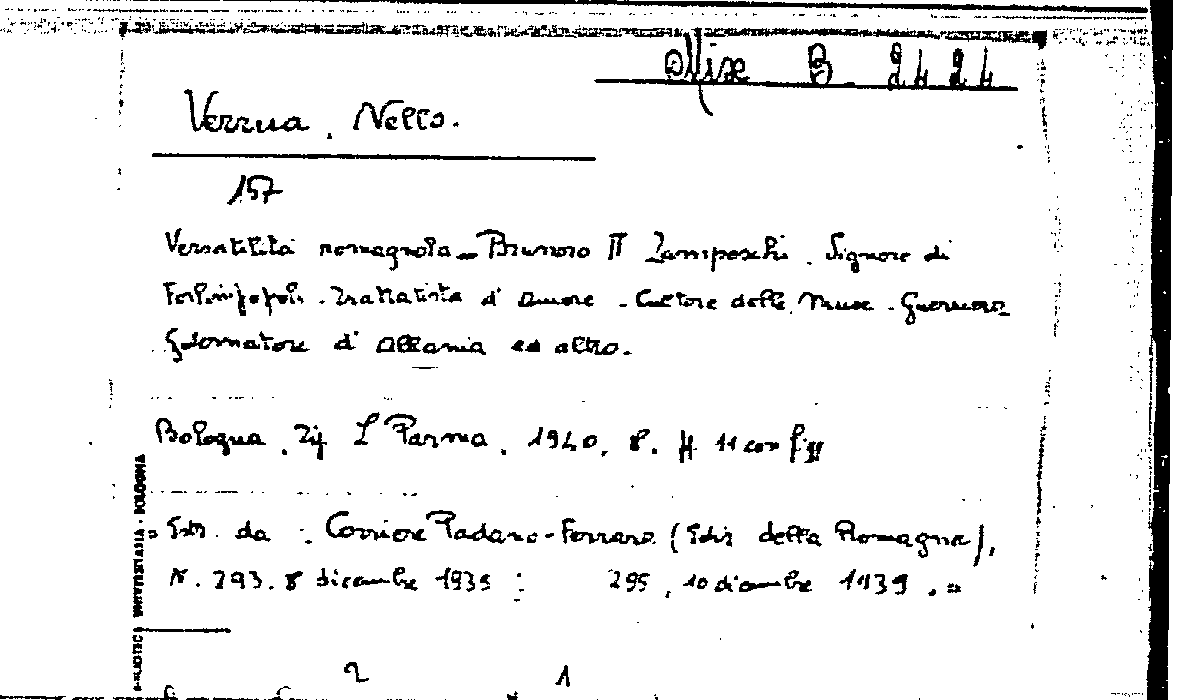 Misc B 2424
Verrua, Nello.
157
Versatilità romagnola - Brunoro II Zampeschi. Signore di
Forlimpopoli. Trattatista d'Amore - Cultore delle Muse - Guerriero
Governatore d'Albania ed altro.
Bologna, Tip L Parma, 1940, 8. pp 11 con figg
" Estr. da : Corriere Padano - Ferrara (Ediz della Romagna),
N. 293. 8 dicembre 1939 : 295, 10 dicembre 1939. "
BIBLIOTECA UNIVERSITARIA - BOLOGNA
2 1